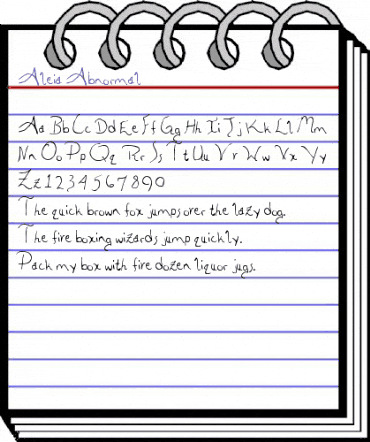 Aleia Abnormal
Aa Bb Cc Dd Ee Ff Gg Hh Ii Jj Kk Ll Mm
Nn Oo Pp Qq Rr Ss Tt Uu Vv Ww Xx Yy
Zz 1 2 3 4 5 6 7 8 9 0
The quick brown fox jumps over the lazy dog.
The fire boxing wizards jump quickly.
Pack my box with fire dozen liquor jugs.